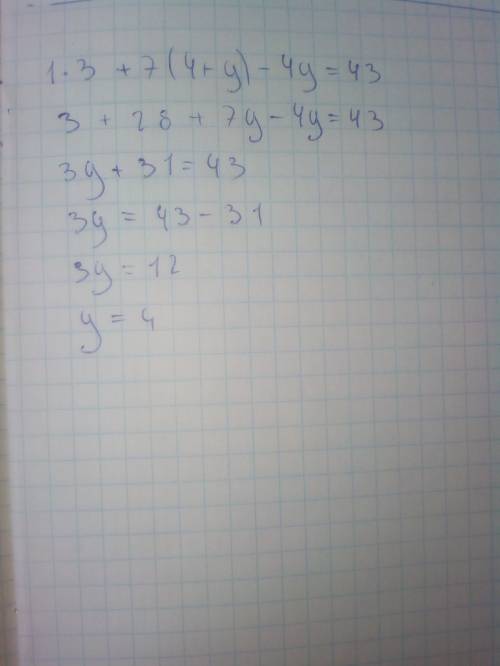 1·3 + 7(4+y) - 4y = 43
3 + 28 + 7y - 4y = 43
3y + 31 = 43
3y = 43 - 31
3y = 12
y = 4